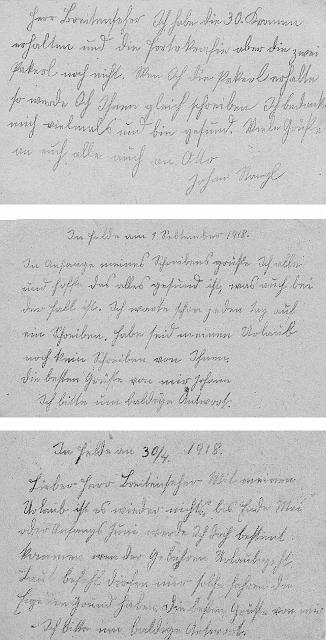 Herr Breitenseher Ich habe die 30. Kronen
erhalten und die aber die zwei
Pakerl noch nicht. Wen Ich die Pakerl erhalte
so werde Ich Ihnen gleich schreiben Ich bedanke
mich vielmals und bin gesund. Viele Grüße
an euch alle auch an Otto
Johan
In Felde am 1 September 1918.
In Anfange meines Schreibens grüße Ich alle
und hoffe das alles gesund ist, was auch bei
der Fall ist. Ich warte schon jeden Tag auf
ein Schreiben. habe seid meinen Urlaub
noch kein Schreiben von Ihnen.
die besten Grüße von mir Johann
Ich bitte um baldige Antwort.
In Felde an 30/4. 1918.
Lieber Herr Breitenseher Mit meinen
Urlaub ist es wieder nichts, bis Ende Mai
oder Anfangs Juni werde Ich doch bestimt
kommen wen der Gebühren Urlaub geht
Laut befehl dürfen nur solche fahren die
Grund haben. Die besten Grüße von mir
Ich bitte um baldige Antwort.